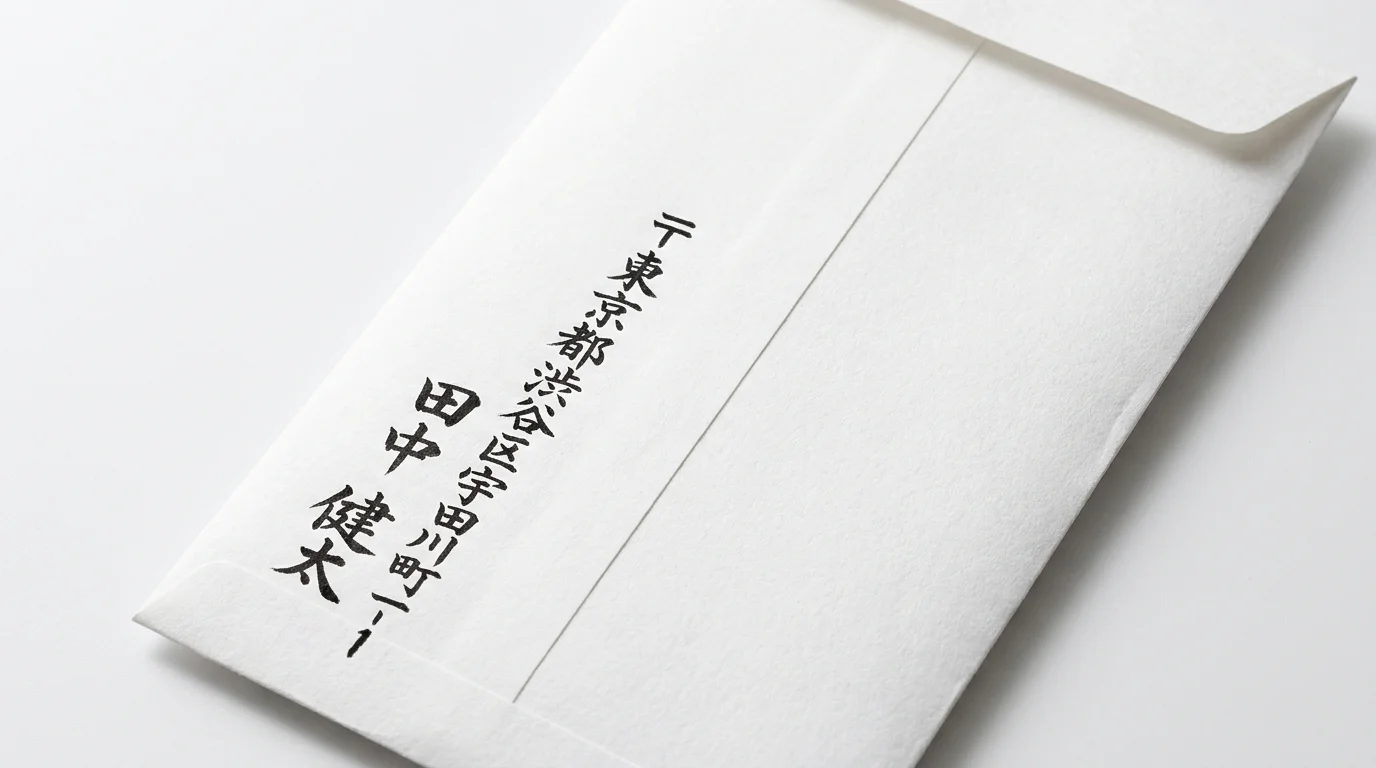 〒東京都渋谷区宇田川町一-1
田中 健太